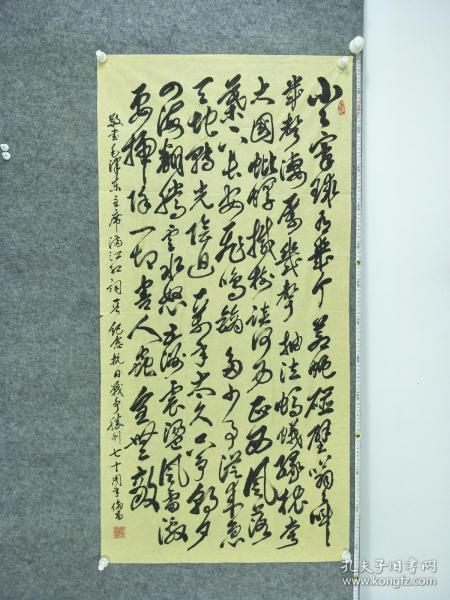 小小寰球有几个苍蝇碰壁嗡嗡叫
几声凄厉几声抽泣蚂蚁缘槐夸
大国蚍蜉撼树谈何易正西风落
叶下长安飞鸣镝多少事从来急
天地转光阴迫一万年太久只争朝夕
四海翻腾云水怒五洲震荡风雷激
要扫除一切害人虫全无敌
敬书毛泽东主席满江红词一首 纪念抗日战争胜利七十周年
孔夫子旧书网
www.kongfz.com